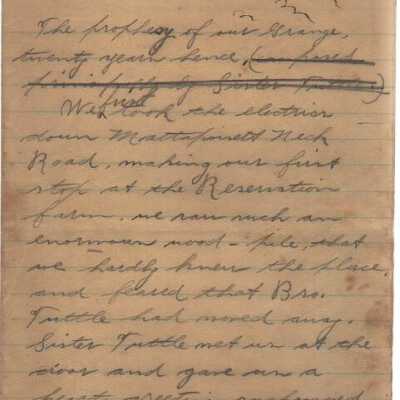 The prophesy of our Grange,
twenty years hence, (as posed
principally by Sister Tuttle.)
We first took the electrics
down Mattapoisett Neck
Road, making our first
stop at the Reservation
farm, we saw such an
enormous wood-pile, that
we hardly knew the place,
and feared that Bro.
Tuttle had moved away.
Sister Tuttle met us at the
door and gave us a